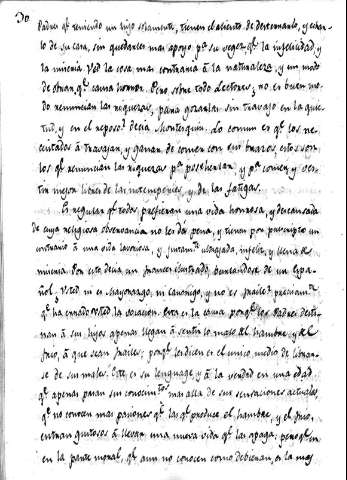 Padres qe. teniendo un hijo solamente, tienen el aliento de desterrarlo, y echar-
lo de su casa, sin quedarles mas apoyo pa. su vegez qe. la infelicidad y
la miseria. Ved la cosa mas contraria â la naturaleza, y un modo
de obrar, qe. causa horror. Pero sobre todo Lectores; no es buen mo-
do renuncian las riquezas, para gozarlas sin trabajo en la quie-
tud, y en el reposo? decia Montesquiu. Lo comun es qe. los ne-
cesitados â trabajar, y ganar de comer con sus brazos, estos son
los qe. renuncian las riquezas pa. poseherlas y pa. comer, y ves-
tir mejor libres de las intemperies, y de las fatigas.
Es regular qe. todos prefieran una vida honrosa, y descansada
de cuya religiosa observancia no les da pena, y tienen por
contrario â una vida laboriosa, y ultrajada, infeliz, y llena de
miseria. Por esto decia un frances ilustrado, burlandose de un Espa-
ñol: Usted ni es Mayorazgo, ni canonigo, y no es fraile?
qe. ha errado usted la vocacion. Esta es la causa porqe. los Padres desti-
nan â sus hijos apenas llegan â sentir lo malo del hambre, y del
frio, â que sean frailes; porqe. les dicen es el unico medio de librar-
se de sus males. Este es su lenguage, y â la verdad en una edad
qe. apenas pasan sus conocimtos. mas alla de sus sensaciones actuales,
qe. no conocen mas pasiones qe. las qe. produce el hambre, y el frio,
entran gustosos â llevar una nueva vida qe. las apaga; pero qe. en
en la parte moral, qe. aun no conocen como debieran, es la mas